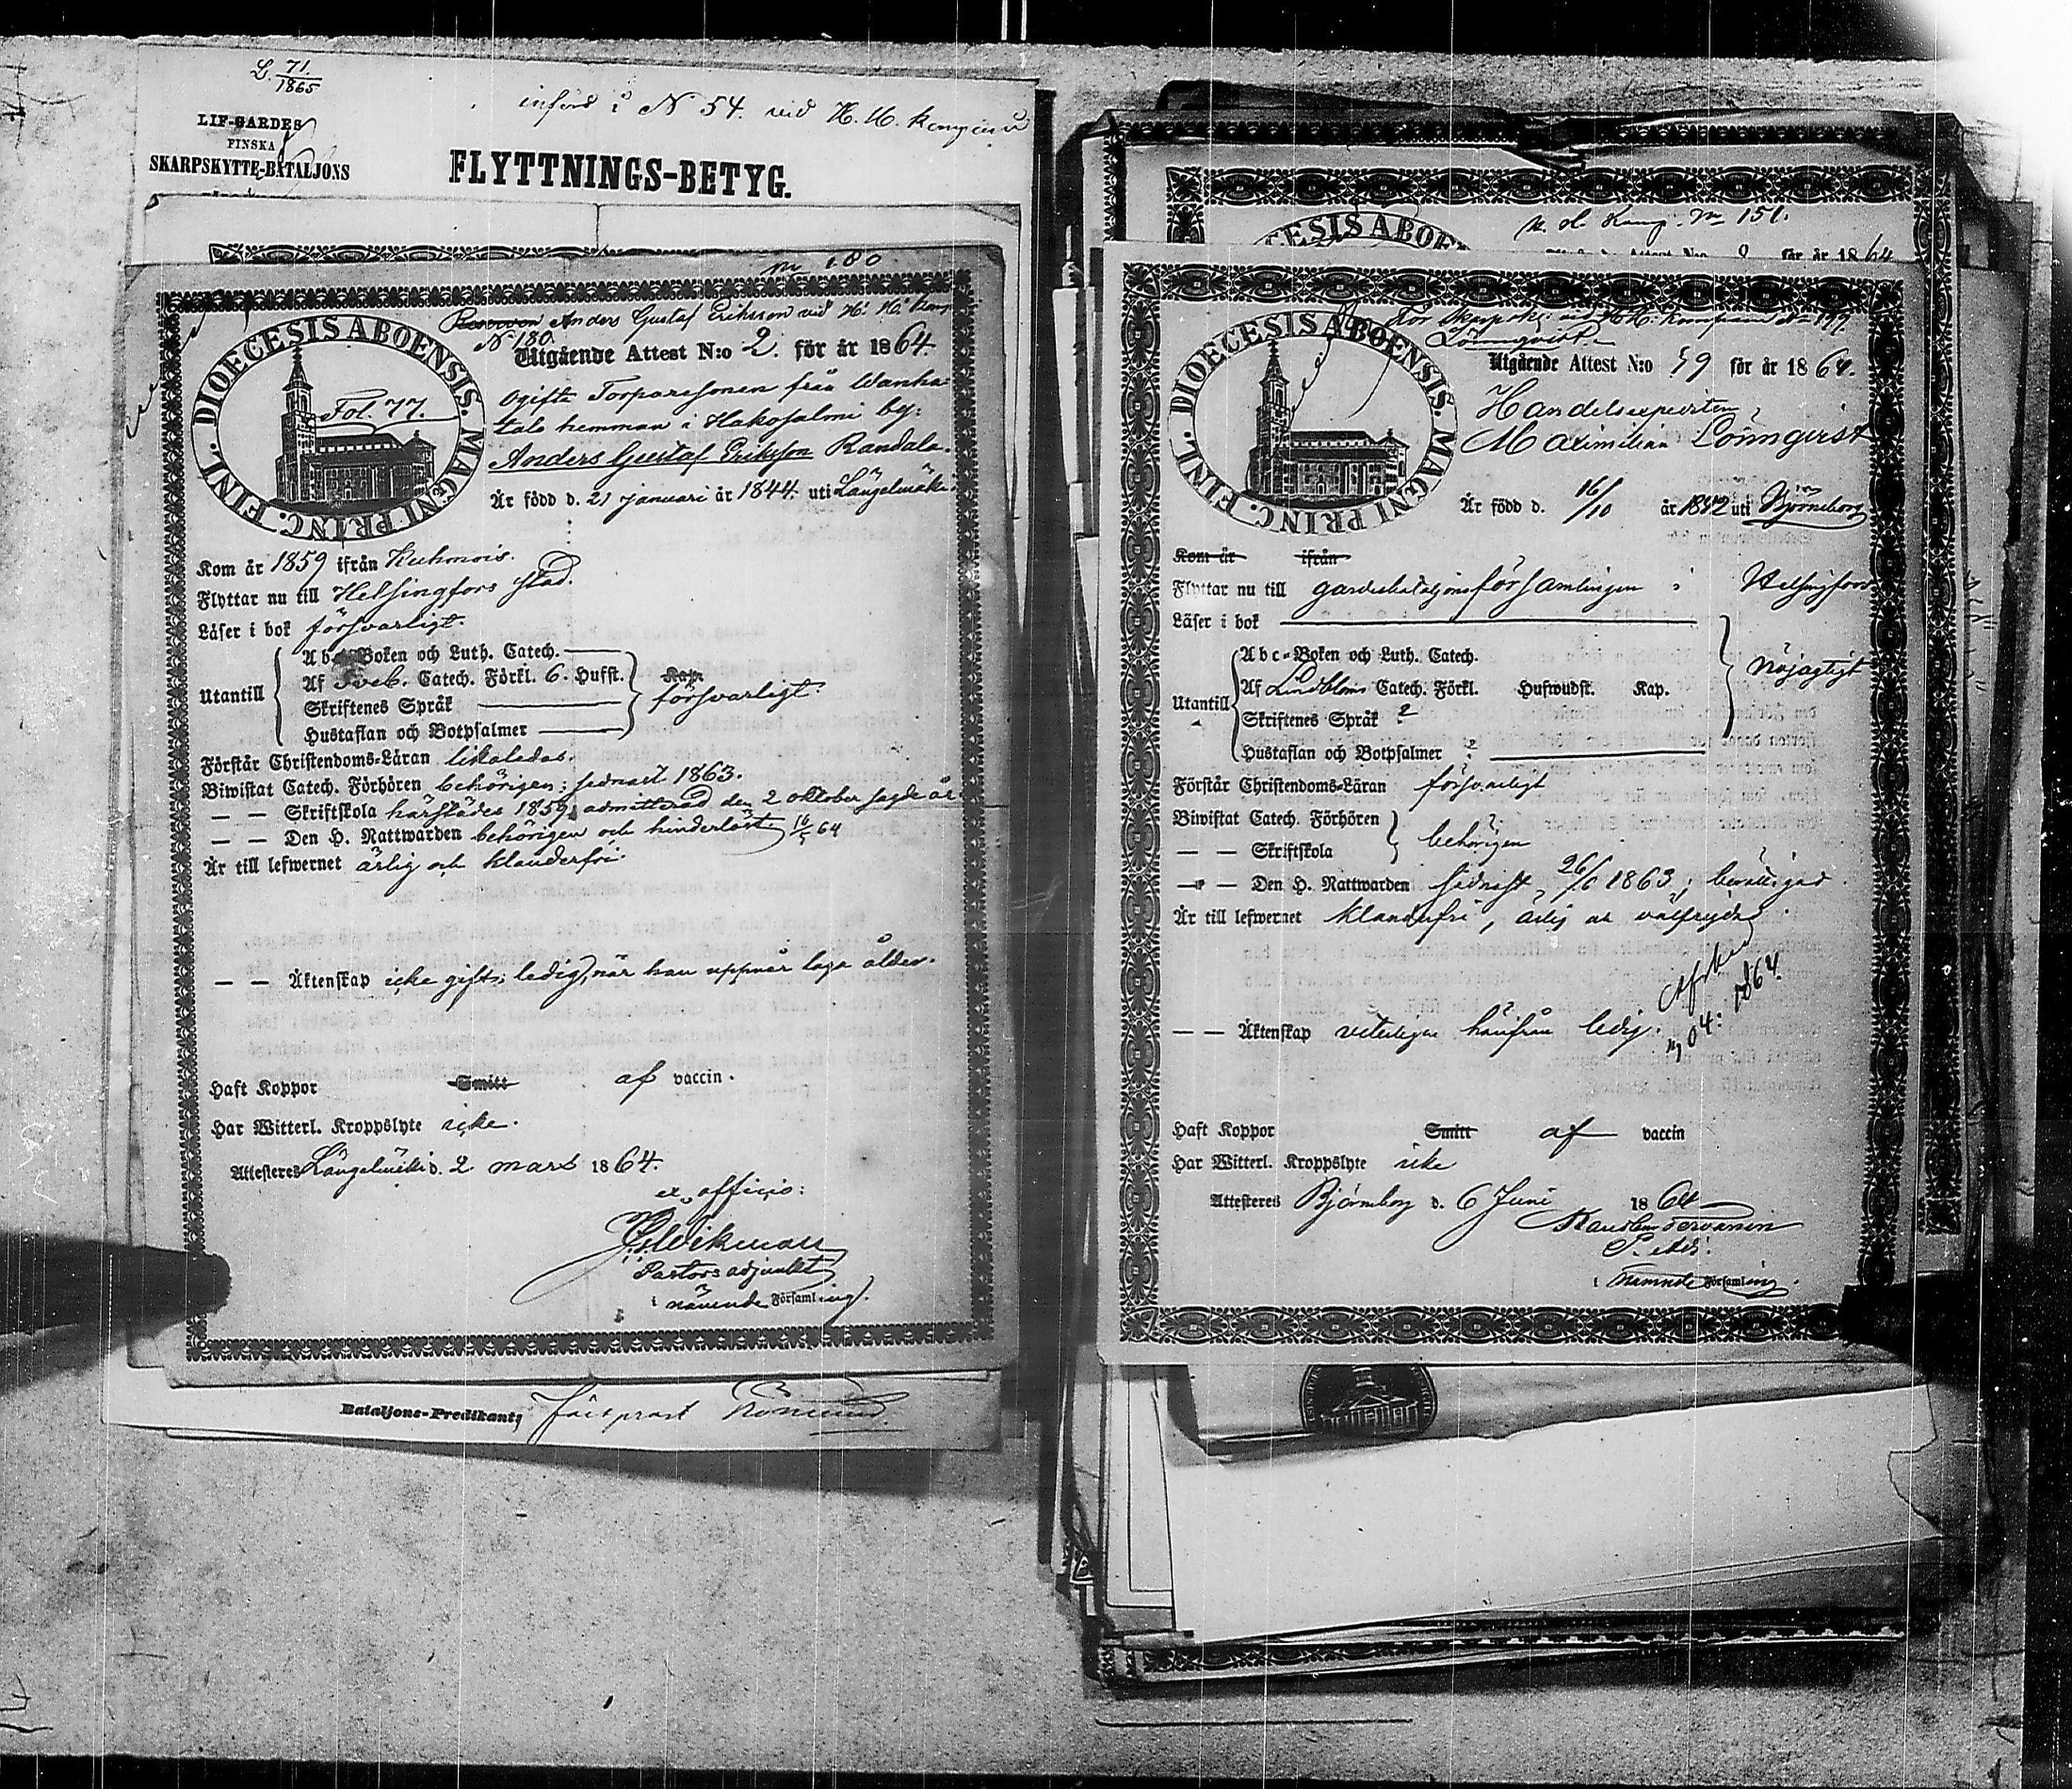 L. 71/1865
införd i N 54. vid H. H. Kompani
LIF-GARDES
FINSKA
SKARPSKYTTE-BATALJONS
FLYTTNINGS-BETYG.
180.
Anders Gustaf Eriksson vid H. H. Komp
N 180.
DIOECESIS ABOENSIS. MAGNI PRINC. FINL.
Fol. 77.
Utgående Attest N:o 2. för år 1864.
ogifte Torparesonen från Wanha-
talo hemman i Hakosalmi by:
Anders Gustaf Eriksson Randala.
Är född d. 21 januari år 1844. uti Längelmäki
Kom år 1859 ifrån Kuhmois.
Flyttar nu till Helsingfors stad.
Läser i bok försvarligt.
Utantill
Abc-Boken och Luth. Catech.
Af Sveb. Catech. Förkl. 6. Hufst. Kap.
försvarligt.
Skriftenes Språk
Hustaflan och Botpsalmer
Förstår Christendoms-Läran likaledes.
Biwistat Catech. Förhören behörigen; sednast 1863.
— — Skriftskola härstädes 1859; admitterad den 2 oktober sagde år
— — Den H. Nattwarden behörigen och hinderlöst 64
Är till lefwernet ärlig och klanderfri.
— — Äktenskap icke gift; ledig, när han uppnår laga ålder.
Haft Koppor Smitt af vaccin.
Har Witterl. Kroppslyte icke.
Attesteres Längelmäki d. 2 mars 1864.
ex officio:
Wikman
Pastors adjunkt
i nämnde Församling.
Bataljons-Predikant,
DIOECESIS ABOENSIS
Komp. 151.
för år 1864
vid H. H. Kompani
Lönnqvist.
DIOECESIS ABOENSIS. MAGNI PRINC. FINL.
Utgående Attest N:o 59 för år 1864.
Handelsexpediten,
Maximilian Lönnqvist
Är född d. 16/10 år 1842 uti Björneborg
Kom år ifrån
Flyttar nu till gardesbataljonsförsamlingen i Helsingfors
Läser i bok
Utantill
Abc-Boken och Luth. Catech.
nöjagtigt
Af Lindbloms Catech. Förkl. Hufwudst. Kap.
Skriftenes Språk ?
Hustaflan och Botpsalmer ?
Förstår Christendoms-Läran försvarligt
Biwistat Catech. Förhören
behörigen
— — Skriftskola
— — Den H. Nattwarden sednast 26/6 1863; berättigad
Är till lefwernet klanderfri, ärlig och välfrejdad.
— — Äktenskap veterligen härifrån ledig.
04: 1864.
Haft Koppor Smitt af vaccin
Har Witterl. Kroppslyte icke
Attesteres Björneborg d. 6 Juni 1864
i nämnde Församling.